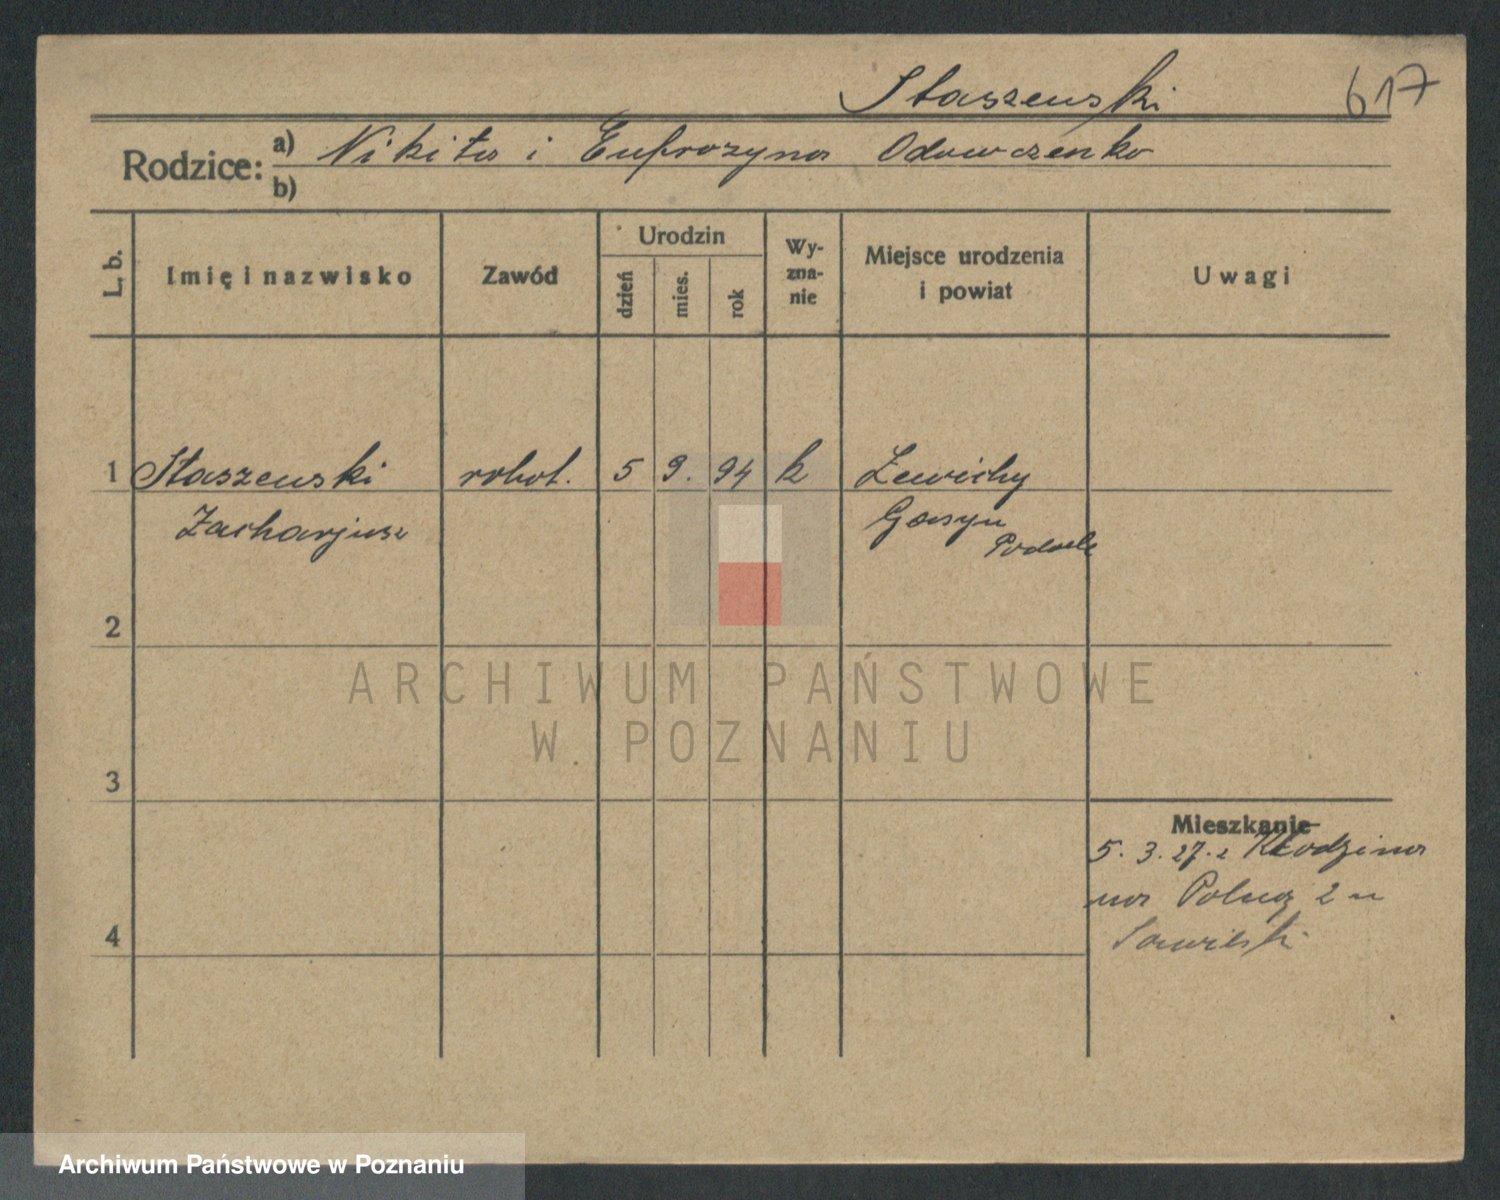 Staszewski
617
Rodzice:
a) Nikita i Eufrozyna Odawczenko
b)
L. b.
Imię i nazwisko
Zawód
Urodzin
dzień
mies.
rok
Wy-
zna-
nie
Miejsce urodzenia
i powiat
Uwagi
1 Staszewski robot. 5 9. 94 k
Zacharjusz
Podole
2
3
4
Mieszkanie
5. 3. 27. z Kłodzina
na Polną 2 u
ARCHIWUM PAŃSTWOWE
W POZNANIU
Archiwum Państwowe w Poznaniu